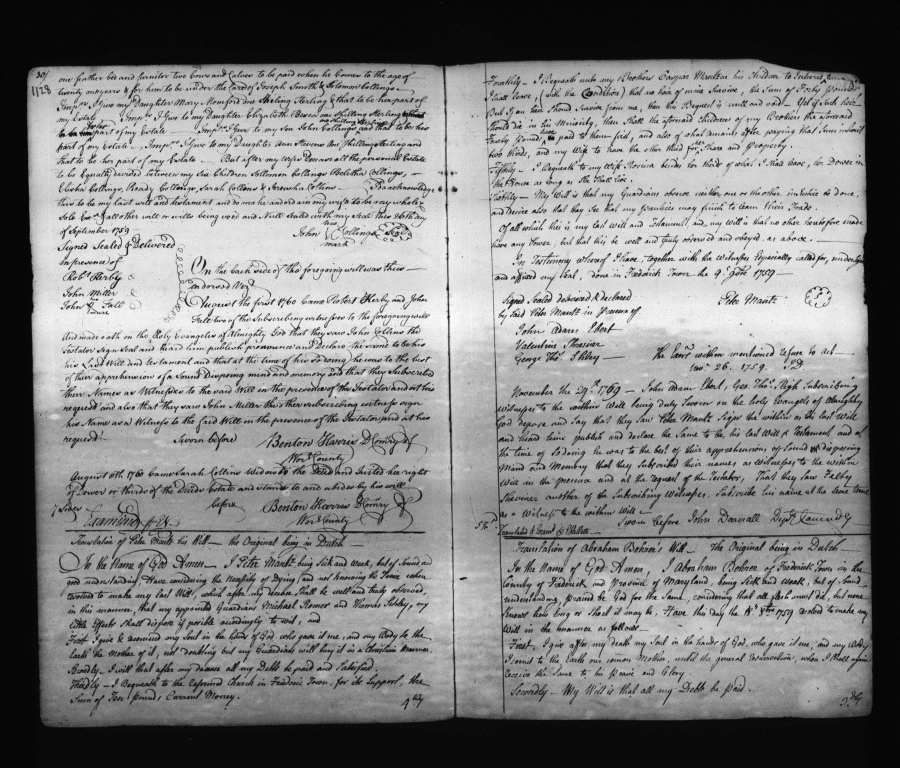 30/
1128
one feather bed and furnitor two Cows and Calves to be paid when he Comes to the age of
twenty one years & for him to be under the Care of Joseph Smith & Solomon Collings
Imprs I give my Daughter Mary Momford one Sterling & that to be her part of
my Estate Imprs I give to my Daughter Elizabeth one Shilling Sterling
part of my Estate Imprs I give to my Son John Collings and that to be his
part of my Estate Imprs I give to my Daughter Ann Stevens one Shilling Sterling and
that to be her part of my Estate But after my wifes Decease all the personal Estate
to be Equally devided between my Six Children Sollomon Collings Belitha Collings,
Elisha Collings, Keady Collings, Sarah Collins & Collins I do acknowledge
this to be my last will and testament and do make and ordain my wife to be my whole &
Sole Exr all other will or wills being void and Null Sealed with my Seal this 26th day
of September 1759
his
John Collings Seal
mark
Signed Sealed & Delivered
In presence of
Robt Kerby
John Miller
John Fall
On the back side of the foregoing will was thus
endorsed Vizt
August the first 1760 Came Robert Kerby and John
Fall two of the Subscribing witnesses to the foregoing will
And made oath on the Holy Evangels of Almighty God that they saw John Collins the
Testator Sign Seal and heard him publish pronounce and Declare the same to be his
his Last Will and testament and that at the time of his So doing he was to the best
of their apprehension of a Sound Disposing mind and memory and that they Subscribed
their Names as Witnesses to the said Will in the presence of the Testator and at his
request and also that they saw John Miller the other subscribing witness sign
his Name as a Witness to the Said Will in the presence of the Testator and at his
request Sworn before Benton Harris D Comry of
Worr County
August 6th 1760 Came Sarah Collins Widow of the Deced and Quited her right
of Dower or thirds of the Deceds Estate and stands to and abides by his will
7 Sides before Benton Harris D Comry of
Examined Worr County
Translation of Peter Mantz his Will the Original being in Dutch
In the Name of God Amen. I Peter Mantz being Sick and Weak, but of Sound and
good understanding, Have considering the Necessity of Dying, and not knowing the Time when
resolved to make my last Will, which after my decease Shall be well and truly observed,
in this manner, that my appointed Guardians Michael Romer and Thomas Schley, my
little Effects Shall dispose if posible accordingly to wit, and
First I give & recomend my Soul in the hands of God, who gave it me, and my Body to the
Earth the Mother of it, not doubting but my Guardians will bury it in a Christian Manner.
2ondly I will that after my decease all my Debts be paid and Satisfied.
Thirdly I Bequeath to the Reformed Church in Frederic Town, for its Support, the
Sum of Ten pounds Currant Money.
4thly
Fourthly I Bequeath unto my Brothers Caspar Mantz his Children to Inherit from
I shall leave, (with the Condition) that no heir of mine Survive, the Sum of Forty Pounds
But if an heir Should survive from me, then this Bequest is null and void Yet if such heir
Should die in his Minority, then Shall the aforesaid Children of my Brother the aforesaid
Forty Pounds have paid to them said, and also of what remains after paying that Sum in Said
two thirds, and my Wife to have the other third for her Share and property.
Fifthly I Bequeath to my Wife Rosina besides her third of what I shall leave, her Dower in
the House as long as She Shall live.
Sixthly My Will is that my Guardians observe neither one or the other Injustice be done,
and desire also that they See that my prentices may finish to learn their Trade.
Of all which this is my last Will and Testament, and my Will is that no other heretofore made
have any Power, but that this be well and truly observed and obeyed as above.
In Testimony whereof I have, together with the Witnesses Especially called for, underSigned
and affixed my Seal, done in Frederick Town the 9 7ber 1759
Signed Sealed delivered & declared
by said Peter Mantz in presence of Peter Mantz
John Adam Ebert
Valentine Shreiner
George Thos Schley
The Exrs within mentioned refuse to Act
26. 1759.
November the 29th 1769 John Adam Ebert, Geo. Thos Slegh Subscribing
Witnesses to the within Will being duly Sworn on the holy Evangels of Almighty
God depose and Say that they Saw Peter Mantz Sign the within as his Last Will
and heard him publish and declare the Same to be his last Will & Testament and at
the time of So doing he was to the best of their apprehensions of Sound & disposing
Mind and Memory that they Subscribed their names as Witnesses to the within
Will in the presence and at the request of the Testator, That they Saw
Shreiner another of the Subscribing Witnesses, Subscribe his name at the same time
as a Witness to the within Will
Sworn before John Darnall Depty Comry
Translation of Abraham Bohrer's Will The Original being in Dutch
In the Name of God Amen, I Abraham Bohrer of Frederick Town in the
County of Frederick and Province of Maryland, being Sick and Weak, but of Sound
understanding, praised be God for the Same, considering that all flesh must die, but none
knows how long or Short it may be, Have this day the 8ber 1759 resolved to make my
Will in the manner as follows
First, I give after my death my Soul in the hands of God, who gave it me, and my Body
I comit to the Earth our comon Mother, until the general Resurrection, when I shall again
receive the Same to his Praise and Glory.
Secondly My Will is that all my Debts be paid.
3dly